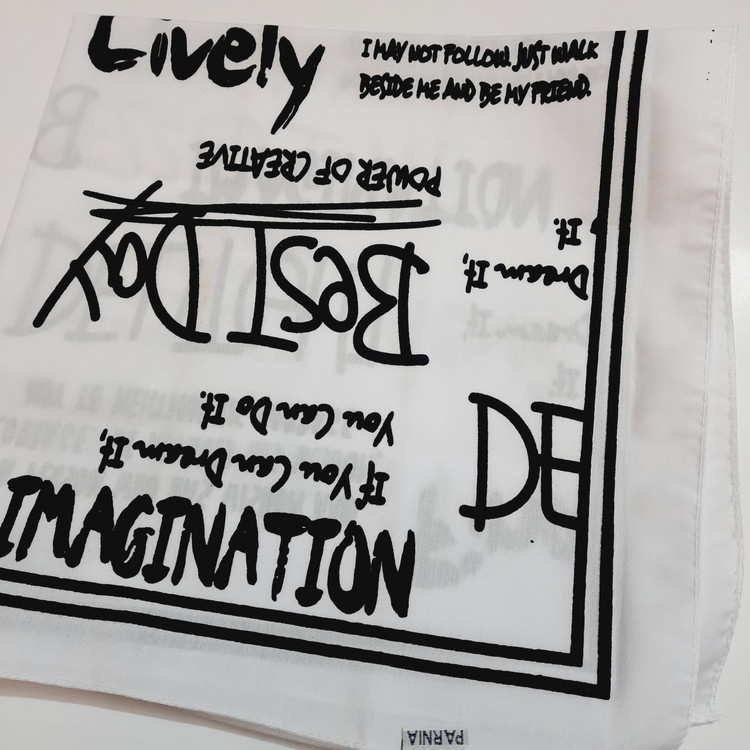 Lively
I MAY NOT FOLLOW. JUST WALK
BESIDE ME AND BE MY FRIEND.
POWER OF CREATIVE
Best Day
Dream It,
It.
If You Can Dream It,
You Can Do It.
DE
IMAGINATION
PARNIA